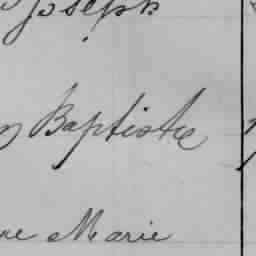 Joseph
Baptiste
Marie